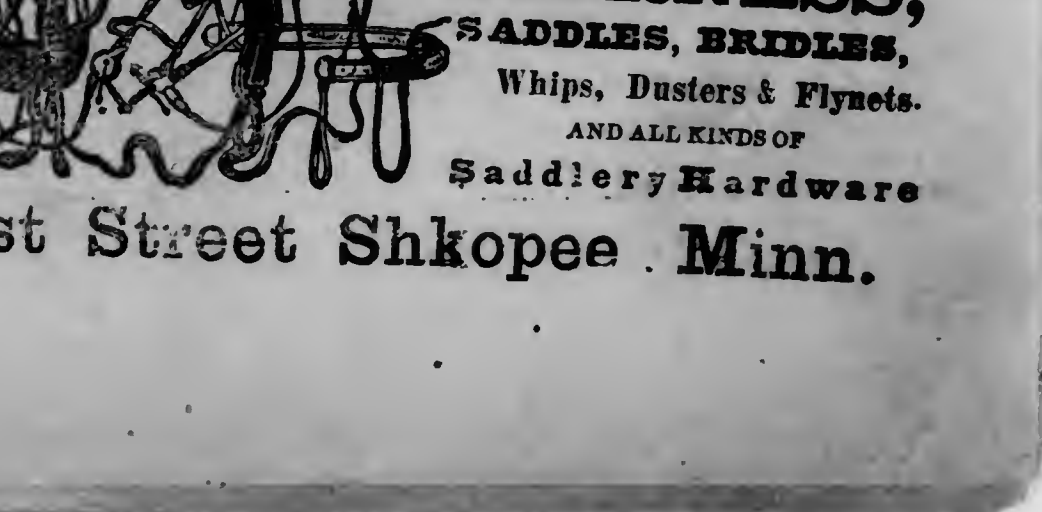 SADDLES, BRIDLES,
Whips, Dusters & Flynets.
AND ALL KINDS OF
Saddlery Hardware
st Street Shkopee . Minn.